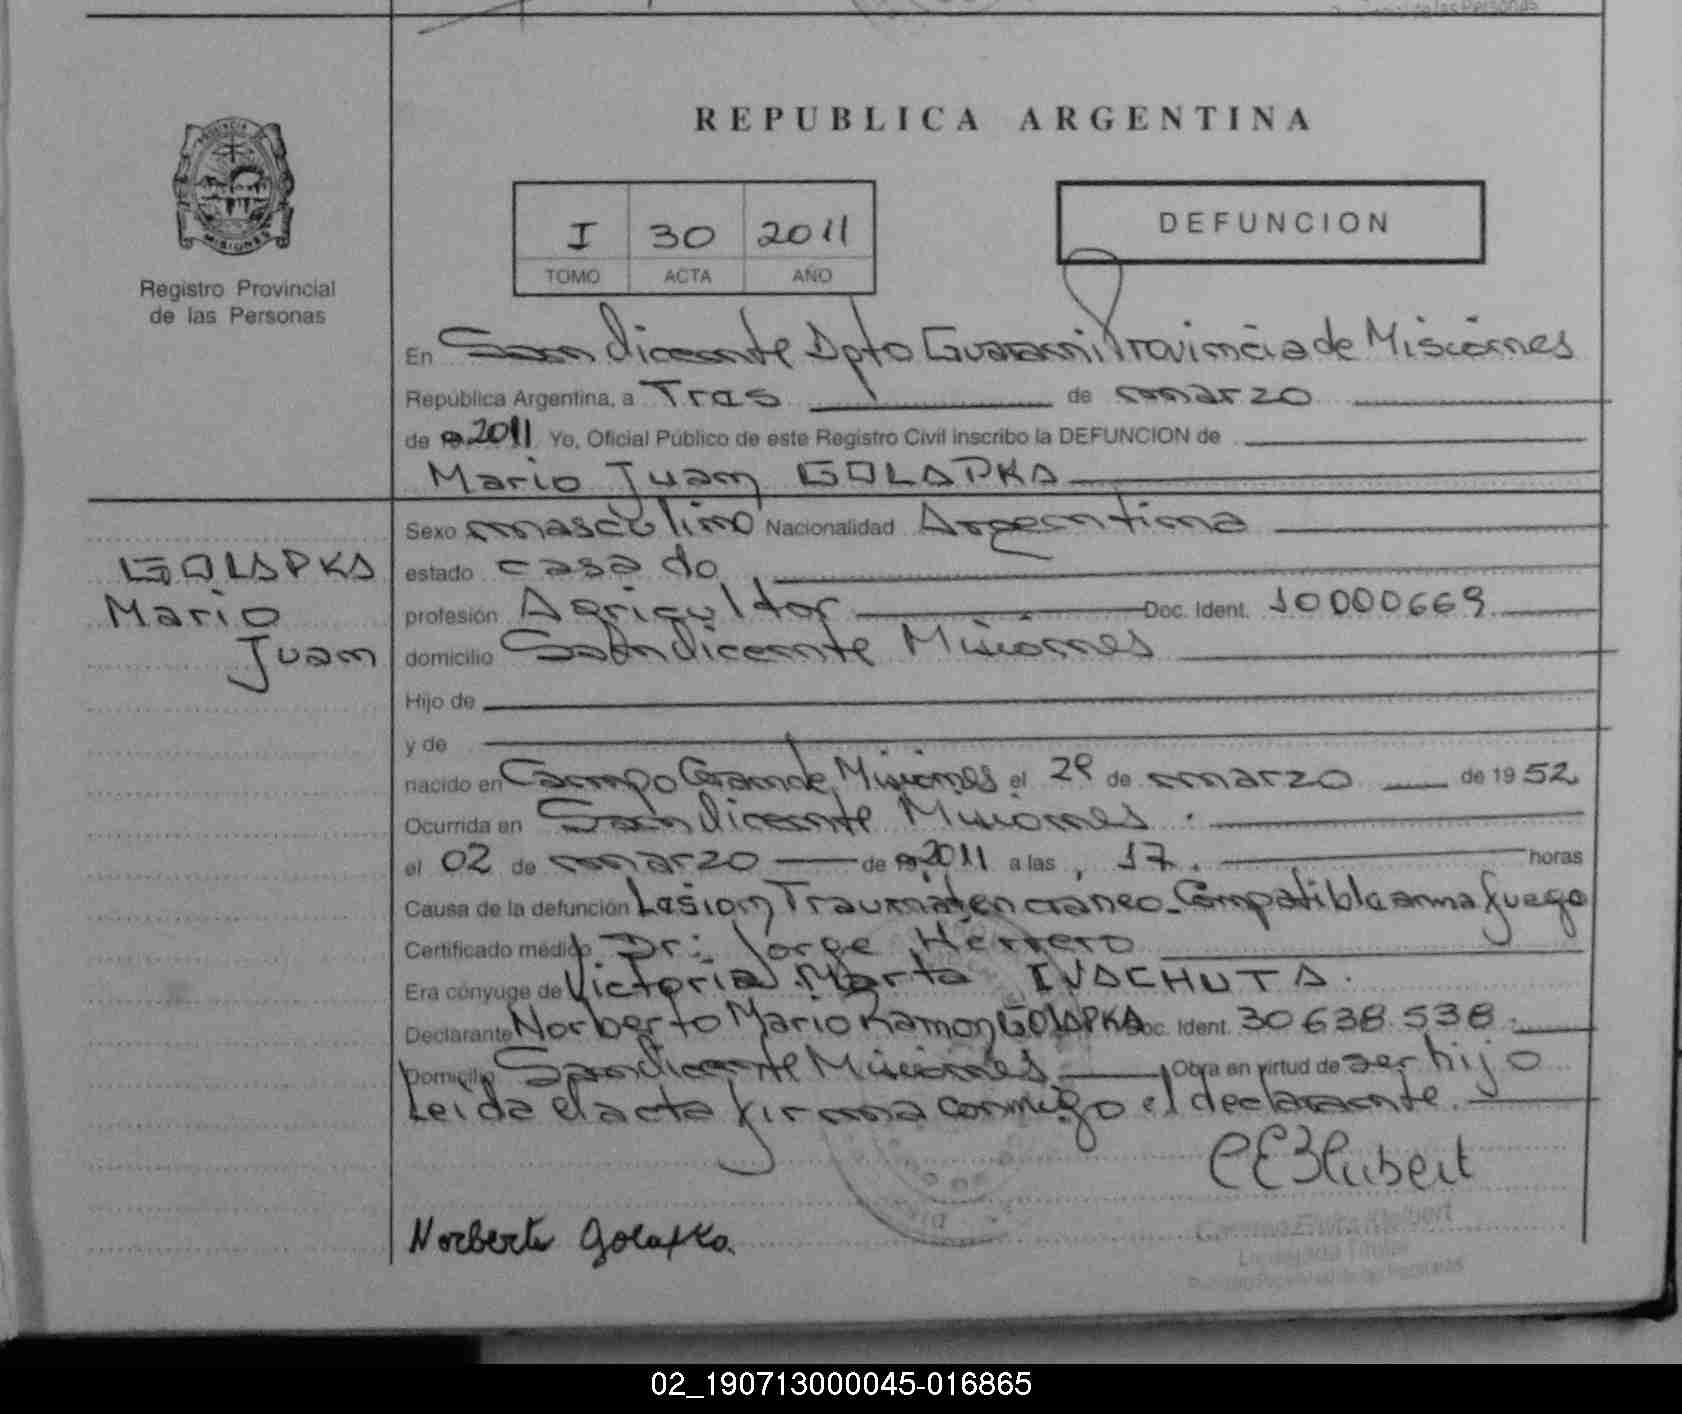 REPUBLICA ARGENTINA
PROVINCIA DE
MISIONES
Registro Provincial
de las Personas
I 30 2011
TOMO ACTA AÑO
DEFUNCION
En San Vicente Dpto Guarani Provincia de Misiones
República Argentina, a Tres de marzo
de 2011 Yo, Oficial Público de este Registro Civil inscribo la DEFUNCION de
Mario Juan GOLAPKA
GOLAPKA
Mario
Juan
Sexo masculino Nacionalidad Argentina
estado casado
profesión Agricultor Doc. Ident. 10000669
domicilio San Vicente Misiones
Hijo de
y de
nacido en Campo Grande Misiones el 29 de marzo de 19 52
Ocurrida en San Vicente Misiones
el 02 de marzo de 2011 a las, 17. horas
Causa de la defunción Lesion Traumat en craneo. Compatible arma fuego
Certificado médico Dr: Jorge Herrero
Era cónyuge de Victoria Marta IVACHUTA.
Declarante Norberto Mario Ramon GOLAPKA Doc. Ident. 30 638.538
Domicilio San Vicente Misiones Obra en virtud de ser hijo
Leida el acta firma conmigo el declarante.
CEHubert
Norberto Golapka.
02_190713000045-016865